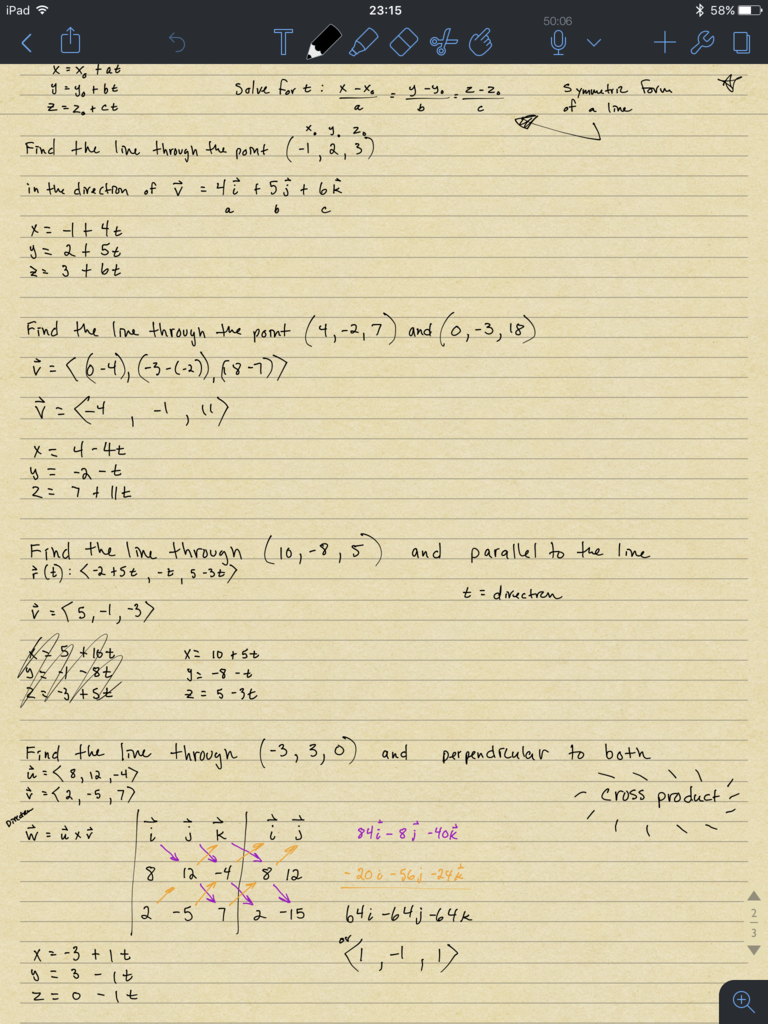 iPad 23:15 58%
T 50:06
x = x₀ + at
y = y₀ + bt
z = z₀ + ct
Solve for t : (x - x₀)/a = (y - y₀)/b = (z - z₀)/c
Symmetric form
of a line
x₀ y₀ z₀
Find the line through the point (-1, 2, 3)
in the direction of v⃗ = 4i⃗ + 5j⃗ + 6k⃗
a b c
x = -1 + 4t
y = 2 + 5t
z = 3 + 6t
Find the line through the point (4, -2, 7) and (0, -3, 18)
v⃗ = <(0-4), (-3-(-2)), (18-7)>
v⃗ = <-4, -1, 11>
x = 4 - 4t
y = -2 - t
z = 7 + 11t
Find the line through (10, -8, 5) and parallel to the line
r⃗(t): <-2+5t, -t, 5-3t>
t = direction
v⃗ = <5, -1, -3>
x = 5 + 10t
y = -1 - 8t
z = -3 + 5t
x = 10 + 5t
y = -8 - t
z = 5 - 3t
Find the line through (-3, 3, 0) and perpendicular to both
u⃗ = <8, 12, -4>
v⃗ = <2, -5, 7>
cross product
Direction
w⃗ = u⃗ x v⃗
i⃗ j⃗ k⃗ i⃗ j⃗
8 12 -4 8 12
2 -5 7 2 -15
84i⃗ - 8j⃗ - 40k⃗
-20i - 56j - 24k⃗
64i - 64j - 64k
or
<1, -1, 1>
x = -3 + 1t
y = 3 - 1t
z = 0 - 1t
2
3